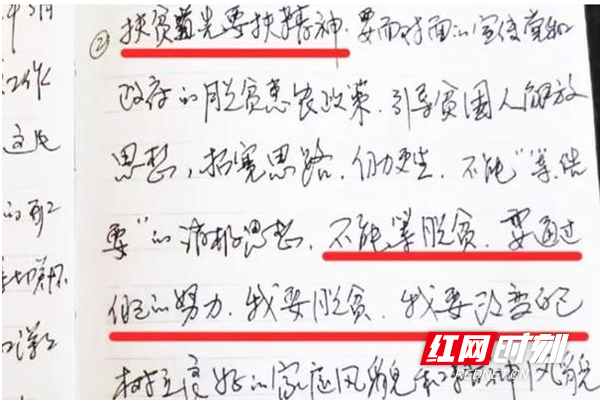 ②扶贫首先要扶精神.要面对面的宣传党和
政府的脱贫惠农政策.引导贫困人解放
思想,拓宽思路.自力更生.不能"等.靠
要"的消极思想,不能等脱贫.要通过
自己的努力.我要脱贫.我要改变自己
树立良好的家庭风貌和精神风貌
工作
这是
的
红网时刻
REDNET.CN